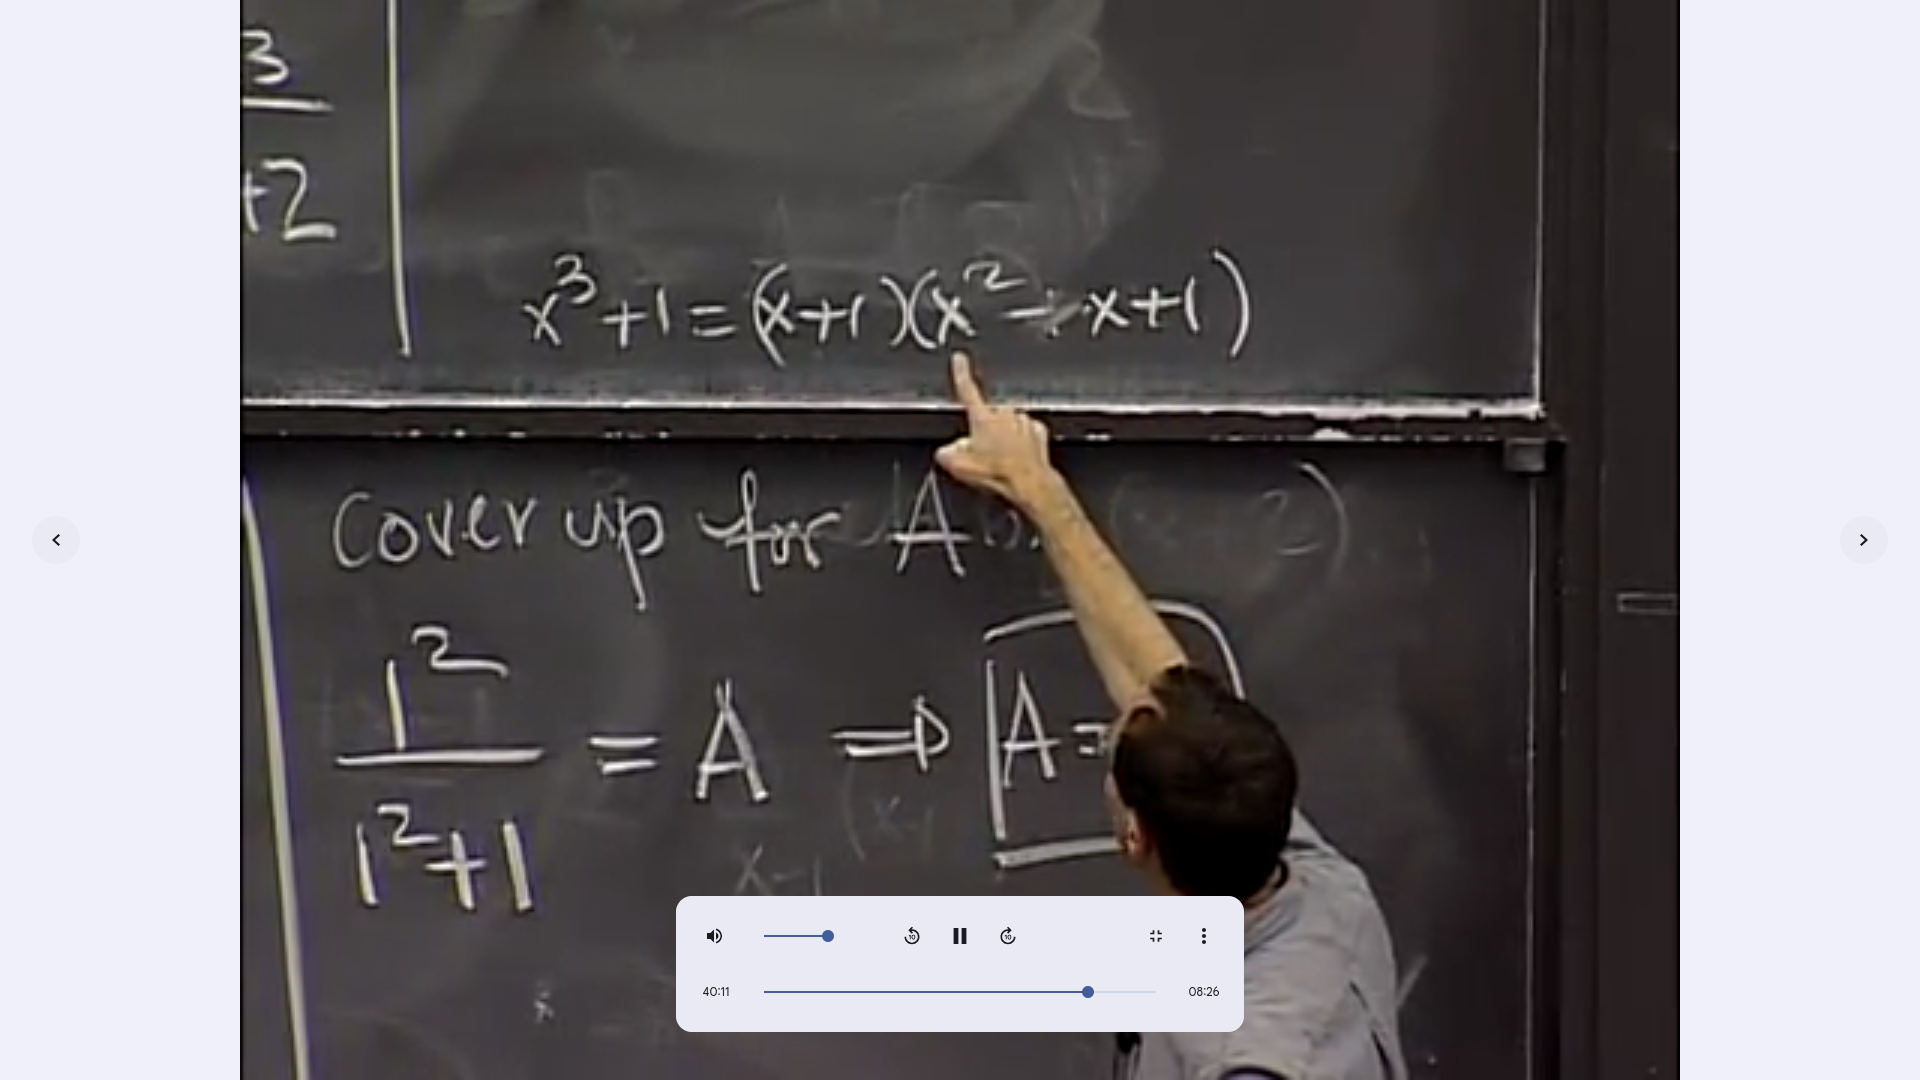 3
+2
x³+1=(x+1)(x²-x+1)
Cover up for A
1²
1²+1
= A ⇒ A =
x-1
10
10
40:11
08:26